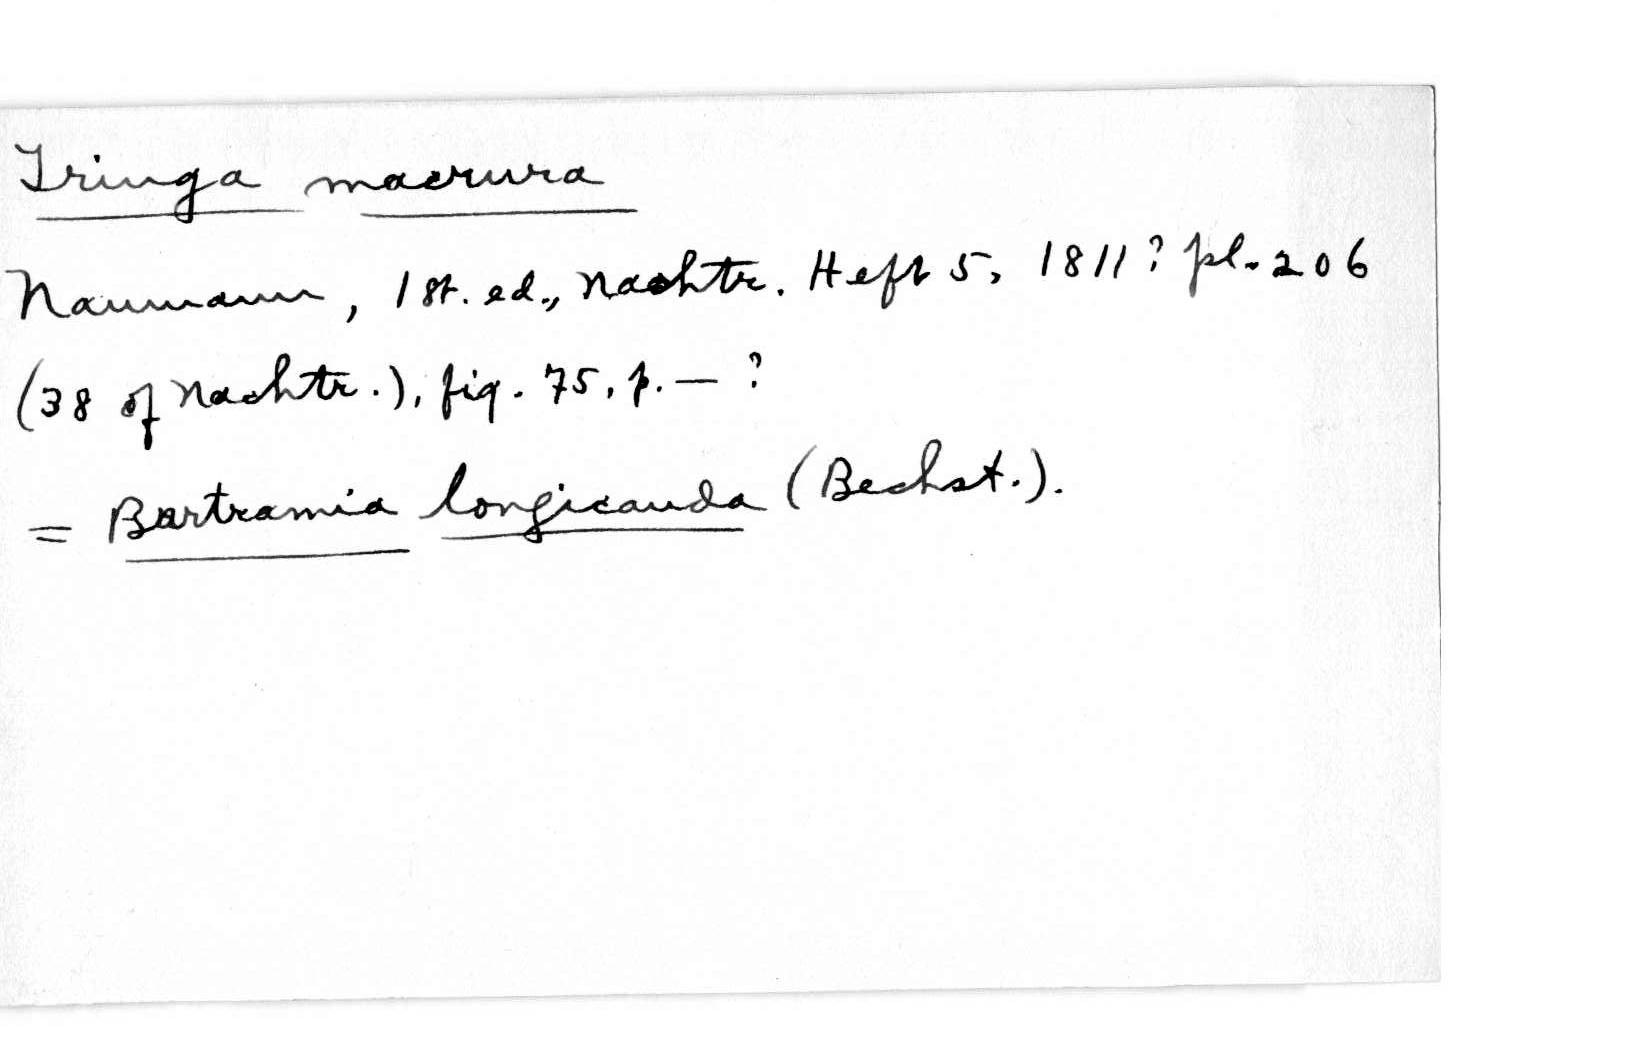 Tringa macrura
Naumann, 1st. ed., Nachtr. Heft 5, 1811? pl. 206
(38 of Nachtr.), fig. 75, p. — ?
= Bartramia longicauda (Bechst.).